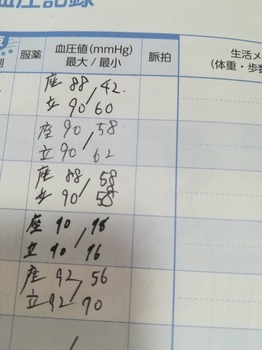 血圧記録
服薬 血圧値(mmHg) 最大/最小 脈拍 生活メ
(体重・歩数
座 88/42
立 90/60
座 90/58
立 90/62
座 88/58
立 90/58
座 90/98
立 90/76
座 92/56
立 92/70